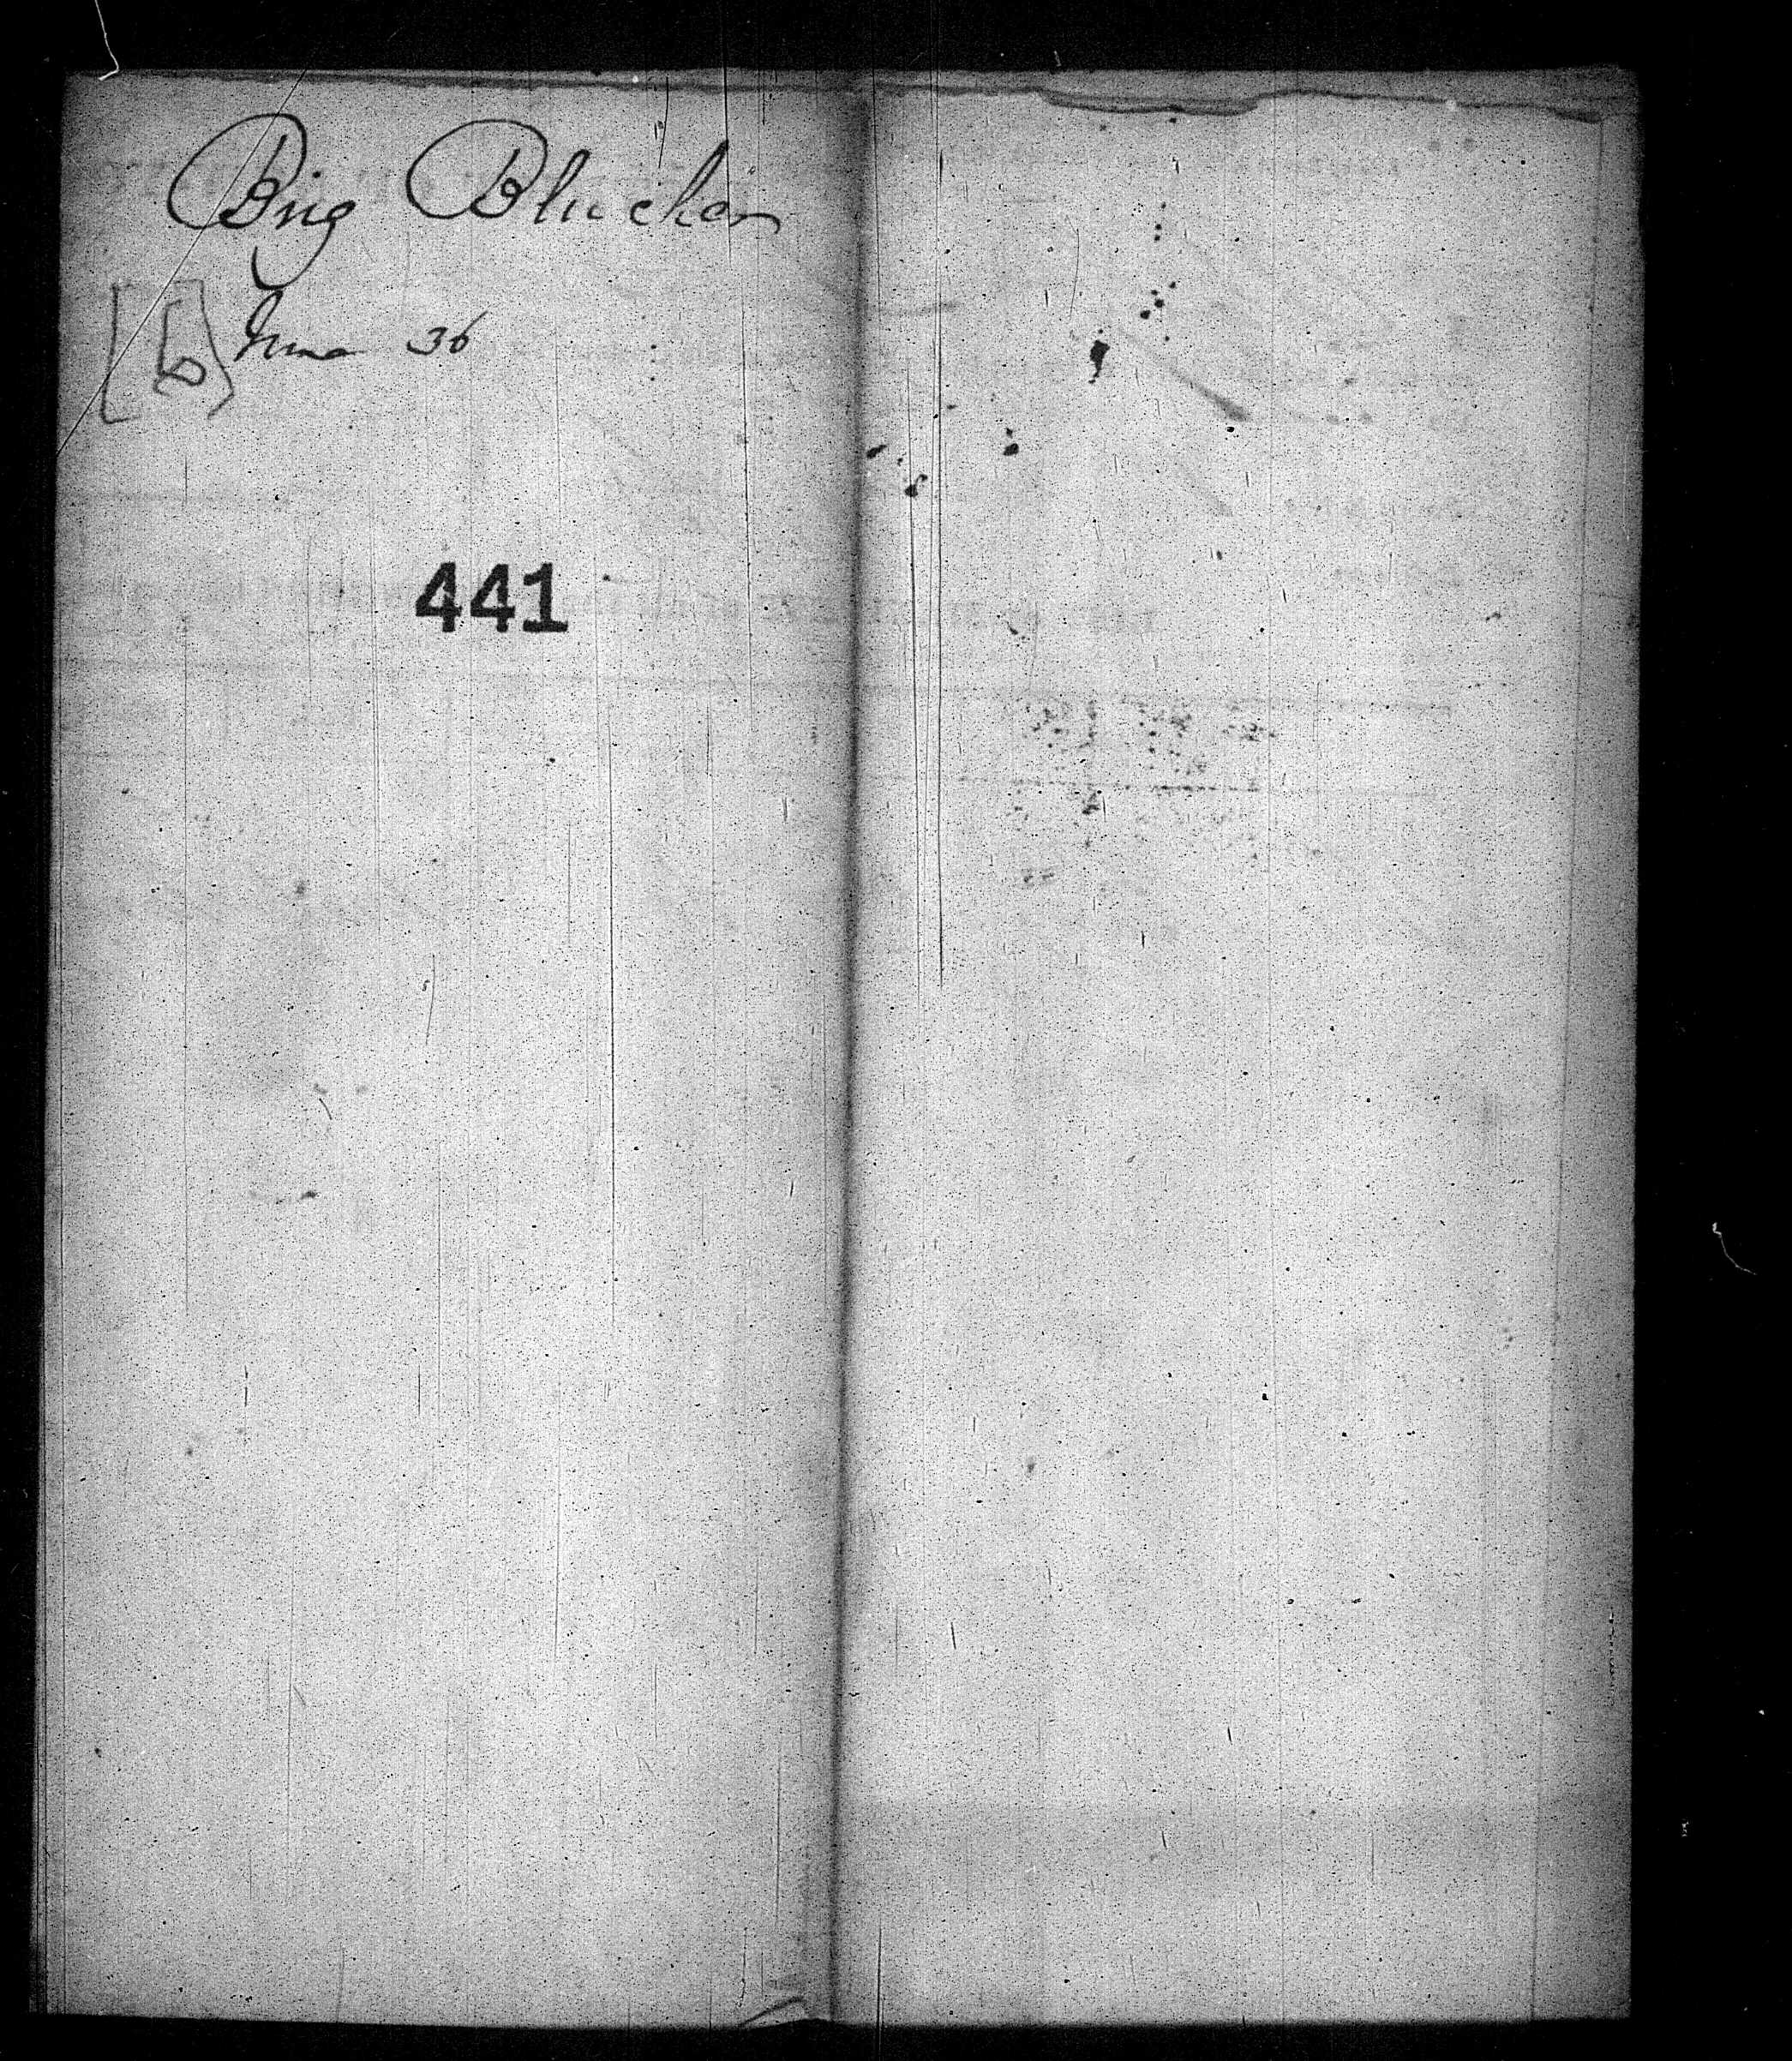 Brig Blucher
[6] June 36
441